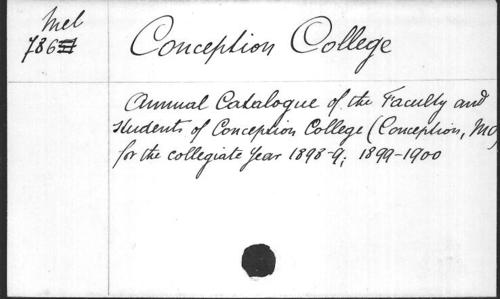 Mel
786
Conception College
Annual Catalogue of the Faculty and
Students of Conception College (Conception, Mo)
for the collegiate year 1898-9; 1899-1900